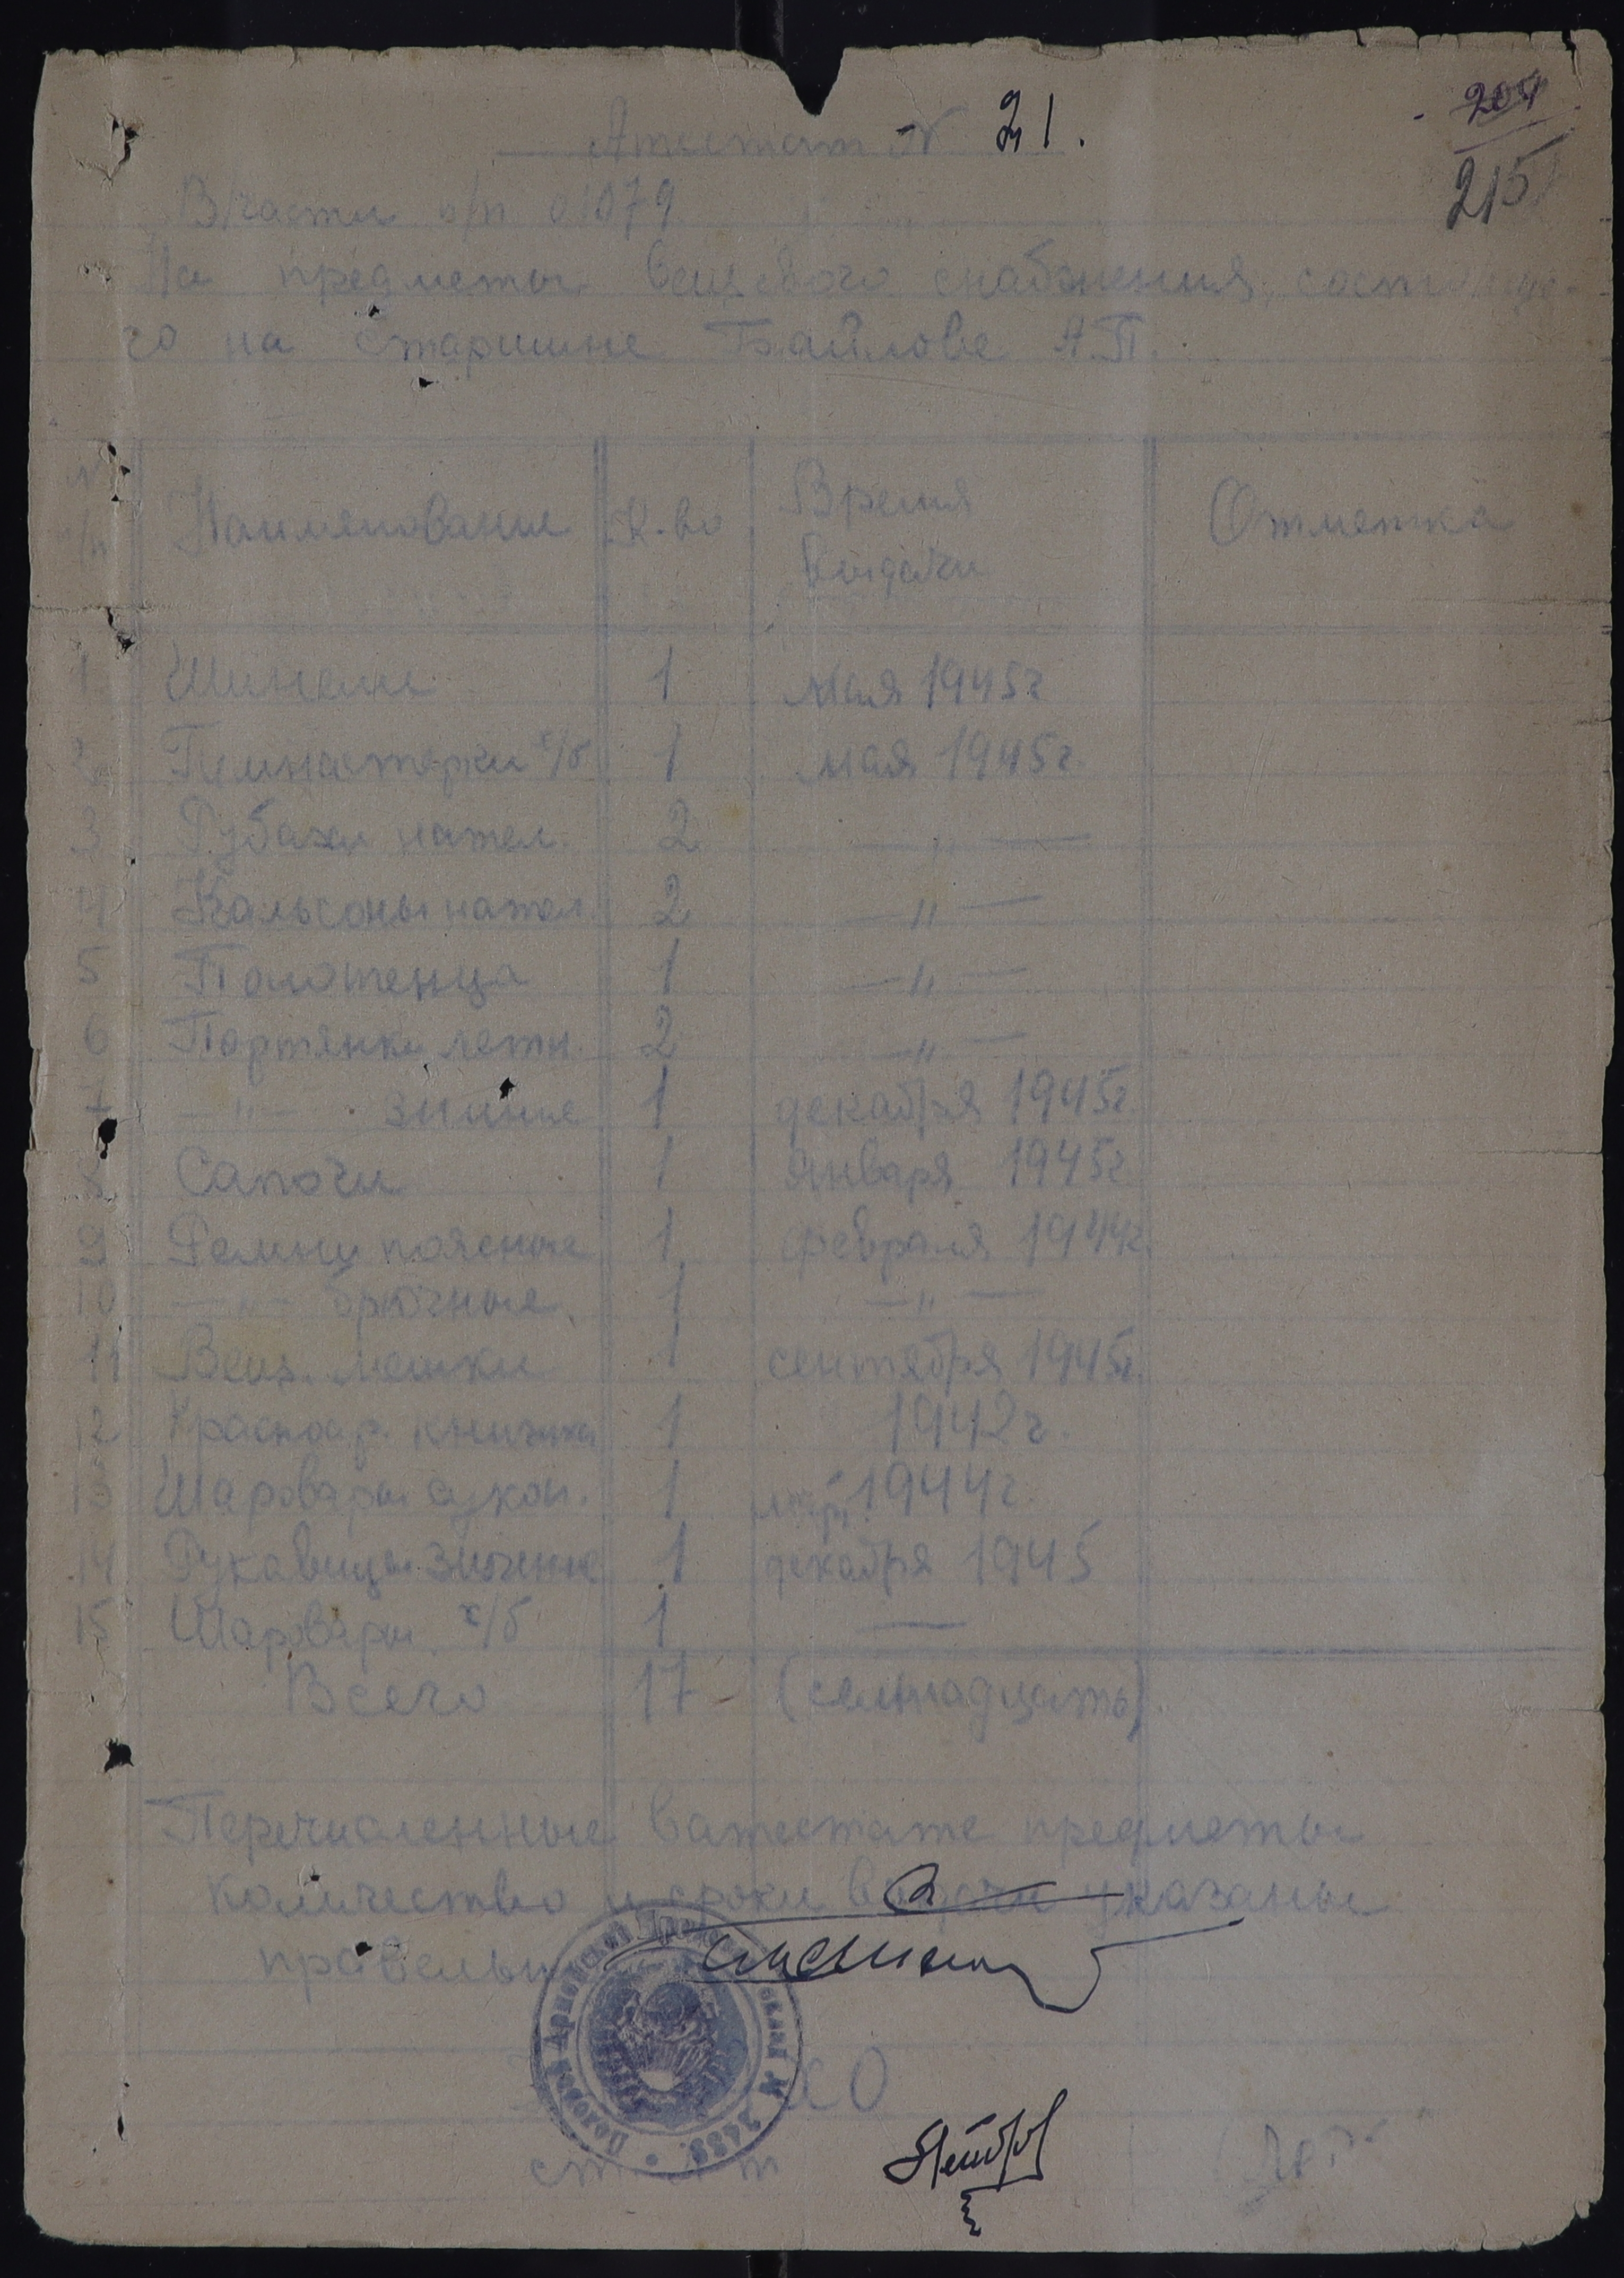 204
215
Атестат № 21.
В/части п/п 01079
На предметы вещевого снабжения, состояще-
го на старшине Байлове А.П.
№ п/п Наименование К-во Время выдачи Отметка
1 Шинели 1 мая 1945г
2 Гимнастерки х/б 1 мая 1945г.
3 Рубахи нател. 2 — " —
4 Кальсоны нател. 2 — " —
5 Полотенца 1 — " —
6 Портянки летн. 2 — " —
7 — " — зимние 1 декабря 1945г.
8 Сапоги 1 января 1945г.
9 Ремни поясные 1 февраля 1944г.
10 — " — брючные 1 — " —
11 Вещ. мешки 1 сентября 1945г.
12 Красноар. книжка 1 1942г.
13 Шаровары сукон. 1 1944г.
14 Рукавицы зимние 1 декабря 1945
15 Шаровары х/б 1 —
Всего 17 (семнадцать).
Перечисленные в атестате предметы
количество и сроки выдачи указаны
правельно